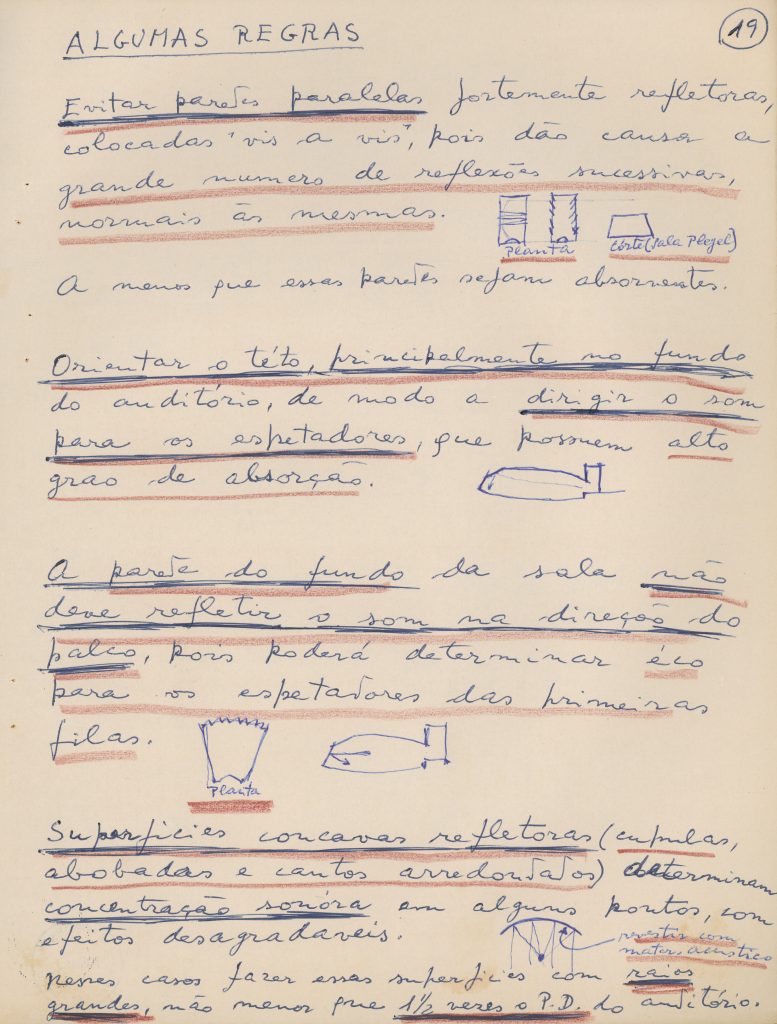 19
ALGUMAS REGRAS
Evitar paredes paralelas fortemente refletoras,
colocadas "vis a vis", pois dão causa a
grande numero de reflexões sucessivas,
normais às mesmas.
Planta
córte (sala Pleyel)
A menos que essas paredes sejam absorventes.
Orientar o této, principalmente no fundo
do auditório, de modo a dirigir o som
para os espetadores, que possuem alto
grao de absorção.
A parede do fundo da sala não
deve refletir o som na direção do
palco, pois poderá determinar éco
para os espetadores das primeiras
filas.
Planta
Superficies concavas refletoras (cupulas,
abobadas e cantos arredondados) determinam
concentração sonóra em alguns pontos, com
efeitos desagradaveis.
revestir com
mater. acustico
Nesses casos fazer essas superficies com raios
grandes, não menor que 1½ vezes o P.D. do auditório.